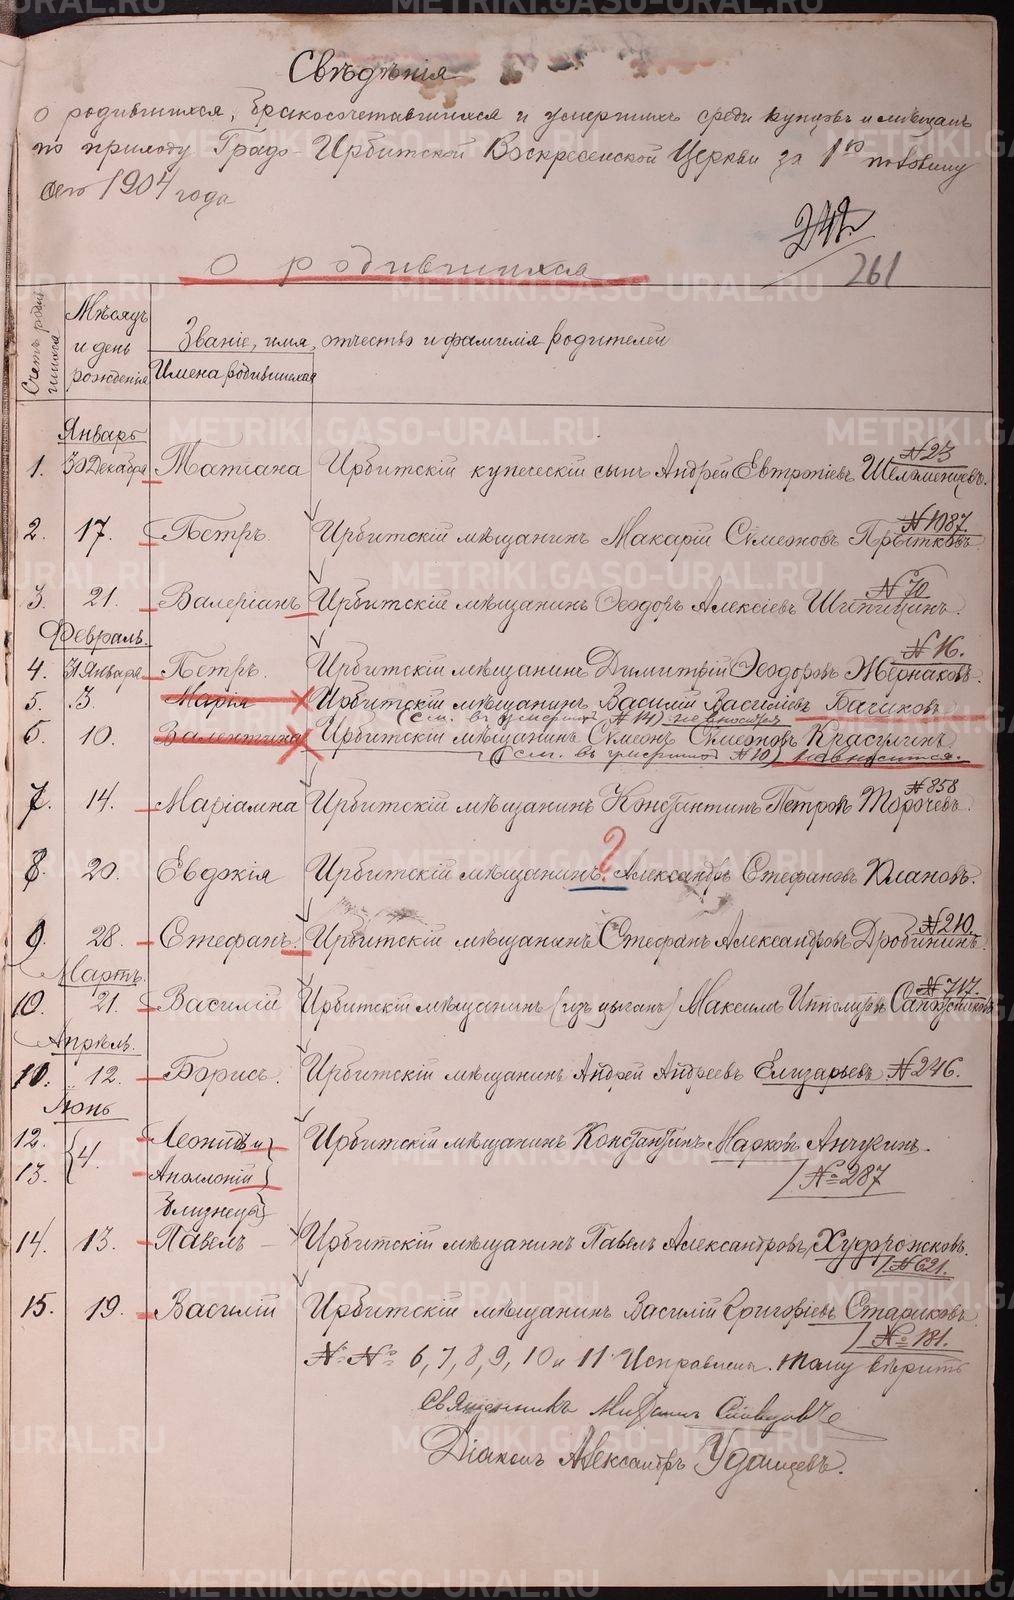 Свѣдѣнія
о родившихся, бракосочетавшихся и умершихъ среди купцовъ и мѣщанъ
по приходу Градо-Ирбитской Воскресенской Церкви за 1ую половину
сего 1904 года
242
261
О родившихся
Счетъ родившихся
Мѣсяцъ и день рожденія
Званіе, имя, отчество и фамилія родителей
Имена родившихся
Январь
1. 30 Декабря Татіана Ирбитскій купеческій сынъ Андрей Евтропіевъ Шеломенцевъ. №23
2. 17. Петръ. Ирбитскій мѣщанинъ Макарій Семеновъ Прытковъ №1087.
3. 21. Валеріанъ Ирбитскій мѣщанинъ Ѳеодоръ Алексіевъ Шипицинъ. №70
Февраль.
4. 31 Января Петръ. Ирбитскій мѣщанинъ Димитрій Ѳеодоровъ Жернаковъ. №16.
5. 3. Марія Ирбитскій мѣщанинъ Василій Васильевъ Бачиковъ
(см. въ умершихъ №14) не вносится
6. 10. Валентина Ирбитскій мѣщанинъ Семеонъ Семеоновъ Красулинъ
(см. въ умершихъ №10) не вносится.
7. 14. Маріамна Ирбитскій мѣщанинъ Константинъ Петровъ Торочевъ. №858
8. 20. Евдокія Ирбитскій мѣщанинъ. ? Александръ Стефановъ Клановъ.
9. 28. Стефанъ. Ирбитскій мѣщанинъ Стефанъ Александровъ Дробининъ. №210.
Мартъ.
10. 21. Василій Ирбитскій мѣщанинъ (изъ цыганъ) Максимъ Ипполитовъ №717.
Апрѣль.
11. 12. Борисъ. Ирбитскій мѣщанинъ Андрей Андреевъ Елизарьевъ №246.
Іюнь
12. 4. Леонидъ и Ирбитскій мѣщанинъ Константинъ Марковъ Анчугинъ.
13. Аполлоній №287
близнецы
14. 13. Павелъ Ирбитскій мѣщанинъ Павелъ Александровъ Худорожковъ. №621.
15. 19. Василій Ирбитскій мѣщанинъ Василій Григоріевъ Стариковъ №181.
№№ 6, 7, 8, 9, 10 и 11 Исправлены. Тому вѣрить
Священникъ
Діаконъ Александръ Удинцевъ.
METRIKI.GASO-URAL.RU